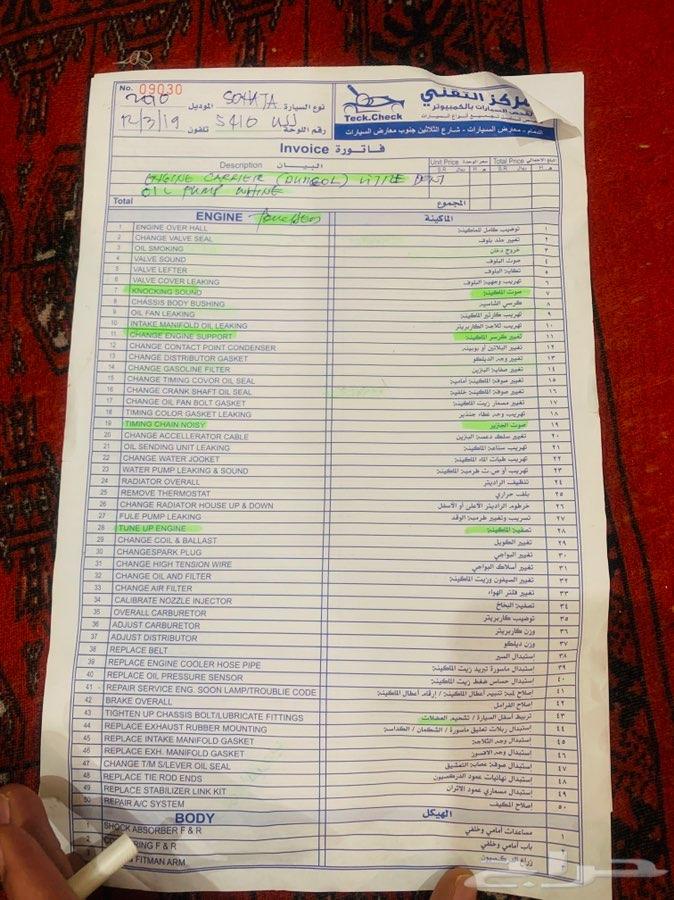 No. 09030
2010 الموديل SONATA نوع السيارة
12/3/19 تلفون 5410 رقم اللوحة
مركز التقني
لفحص السيارات بالكمبيوتر
Teck.Check
الدمام - معارض السيارات - شارع الثلاثين جنوب معارض السيارات
Invoice فـاتـورة
Description البـيــان Unit Price سعر الوحدة Total Price المبلغ الاجمالي
S.R ريال H. هـ S.R ريال H. هـ
ENGINE CARRIER
OIL PUMP WHINE
Total المجموع
ENGINE الماكينة
1 ENGINE OVER HALL توضيب كامل للماكينة ١
2 CHANGE VALVE SEAL تغيير جلد بلوف ٢
3 OIL SMOKING خروج دخان ٣
4 VALVE SOUND صوت البلوف ٤
5 VALVE LEFTER تكاية البلوف ٥
6 VALVE COVER LEAKING تهريب وجهية البلوف ٦
7 KNOCKING SOUND صوت الماكينة ٧
8 CHASSIS BODY BUSHING كرسي الشاسيه ٨
9 OIL FAN LEAKING تهريب كارتير الماكينة ٩
10 INTAKE MANIFOLD OIL LEAKING تهريب ثلاجة الكاربريتر ١٠
11 CHANGE ENGINE SUPPORT تغيير كرسر الماكينة ١١
12 CHANGE CONTACT POINT CONDENSER تغيير البلاتين أو بوبينه ١٢
13 CHANGE DISTRIBUTOR GASKET تغيير وجه الديلكو ١٣
14 CHANGE GASOLINE FILTER تغيير صفاية البنزين ١٤
15 CHANGE TIMING COVOR OIL SEAL تغيير صوفة الماكينة أمامية ١٥
16 CHANGE CRANK SHAFT OIL SEAL تغيير صوفة الماكينة خلفية ١٦
17 CHANGE OIL FAN BOLT GASKET تغيير مسمار زيت الماكينة ١٧
18 TIMING COLOR GASKET LEAKING تهريب وجه غطاء جنذير ١٨
19 TIMING CHAIN NOISY صوت الجنزير ١٩
20 CHANGE ACCELLERATOR CABLE تغيير سلك دعسة البنزين ٢٠
21 OIL SENDING UNIT LEAKING تهريب ساعة الماكينة ٢١
22 CHANGE WATER JOOKET تهريب طبات الماء الماكينة ٢٢
23 WATER PUMP LEAKING & SOUND تهريب أو صوت طرمبة الماكينة ٢٣
24 RADIATOR OVERALL تنظيف الراديتر ٢٤
25 REMOVE THERMOSTAT بلف حراري ٢٥
26 CHANGE RADIATOR HOUSE UP & DOWN خرطوم الراديتر الأعلى أو الأسفل ٢٦
27 FULE PUMP LEAKING تسريب وتغيير طرمبة الوقد ٢٧
28 TUNE UP ENGINE تصفية الماكينة ٢٨
29 CHANGE COIL & BALLAST تغيير الكويل ٢٩
30 CHANGESPARK PLUG تغيير البواجي ٣٠
31 CHANGE HIGH TENSION WIRE تغيير أسلاك البواجي ٣١
32 CHANGE OIL AND FILTER تغيير السيفون وزيت الماكينة ٣٢
33 CHANGE AIR FILTER تغيير فلتر الهواء ٣٣
34 CALIBRATE NOZZLE INJECTOR تصفية البخاخ ٣٤
35 OVERALL CARBURATOR توضيب كاربريتر ٣٥
36 ADJUST CARBURATOR وزن كاربريتر ٣٦
37 ADJUST DISTRIBUTOR وزن ديلكو ٣٧
38 REPLACE BELT استبدال السير ٣٨
39 REPLACE ENGINE COOLER HOSE PIPE إستبدال ماسورة تبريد زيت الماكينة ٣٩
40 REPLACE OIL PRESSURE SENSOR إستبدال حساس ضغط زيت الماكينة ٤٠
41 REPAIR SERVICE ENG. SOON LAMP/TROUBLIE CODE إصلاح لمبة تنبيه أعطال الماكينة / إرقام أعطال الماكينة ٤١
42 BRAKE OVERALL إصلاح الفرامل ٤٢
43 TIGHTEN UP CHASSIS BOLT/LUBRICATE FITTINGS تربيط أسفل السيارة / تشحيم العضلات ٤٣
44 REPLACE EXHAUST RUBBER MOUNTING إستبدال ربلات تعليق ماسورة / الشكمان / الكداسة ٤٤
45 REPLACE INTAKE MANIFOLD GASKET إستبدال وجه الثلاجة ٤٥
46 REPLACE EXH. MANIFOLD GASKET إستبدال وجه الاقسون ٤٦
47 CHANGE T/M S/LEVER OIL SEAL إستبدال صوفة عصاية التعشيق ٤٧
48 REPLACE TIE ROD ENDS إستبدال نهائيات عمود الدركسيون ٤٨
49 REPLACE STABILIZER LINK KIT إستبدال مسماري عمود الاتزان ٤٩
50 REPAIR A/C SYSTEM إصلاح المكيف ٥٠
BODY الهيكل
1 SHOCK ABSORBER F & R مساعدات أمامي وخلفي ١
2 RING F & R ياب أمامي وخلفي ٢
FITMAN ARM ذراع الدركسيون ٣
حراج